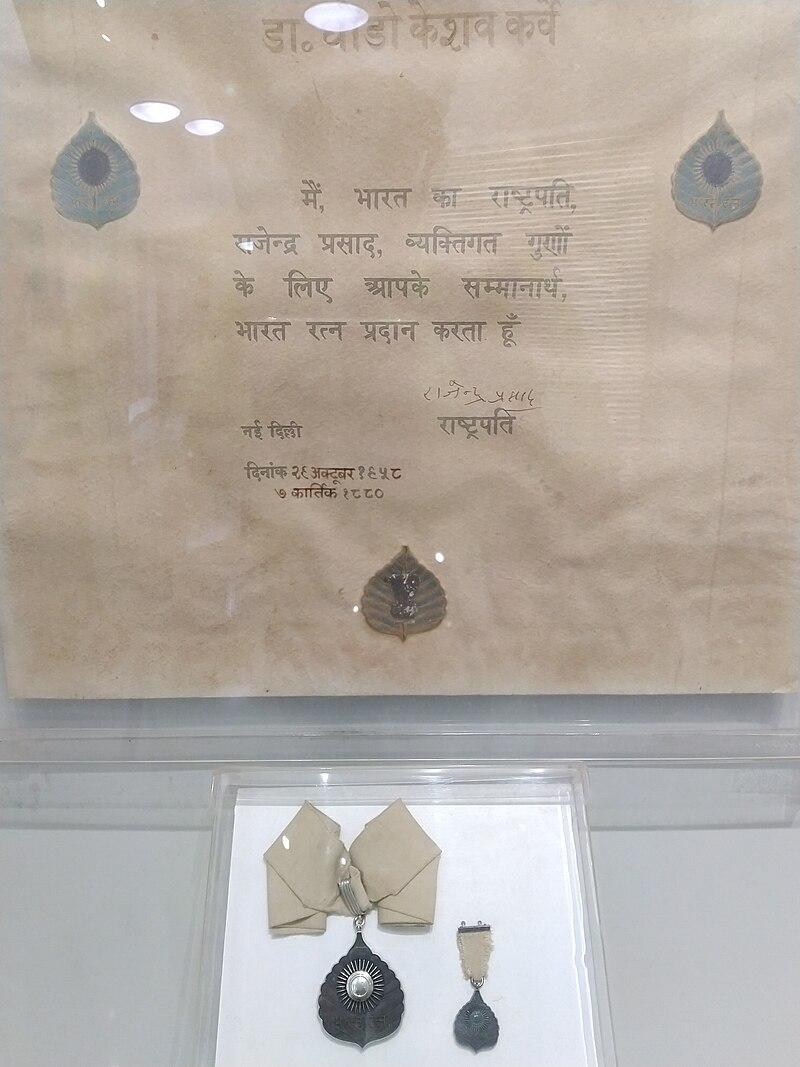 डा॰ धोंडो केशव कर्वे
मैं, भारत का राष्ट्रपति,
राजेन्द्र प्रसाद, व्यक्तिगत गुणों
के लिए आपके सम्मानार्थ,
भारत रत्न प्रदान करता हूँ
राजेन्द्र प्रसाद
राष्ट्रपति
नई दिल्ली
दिनांक २९ अक्टूबर १९५८
७ कार्तिक १८८०